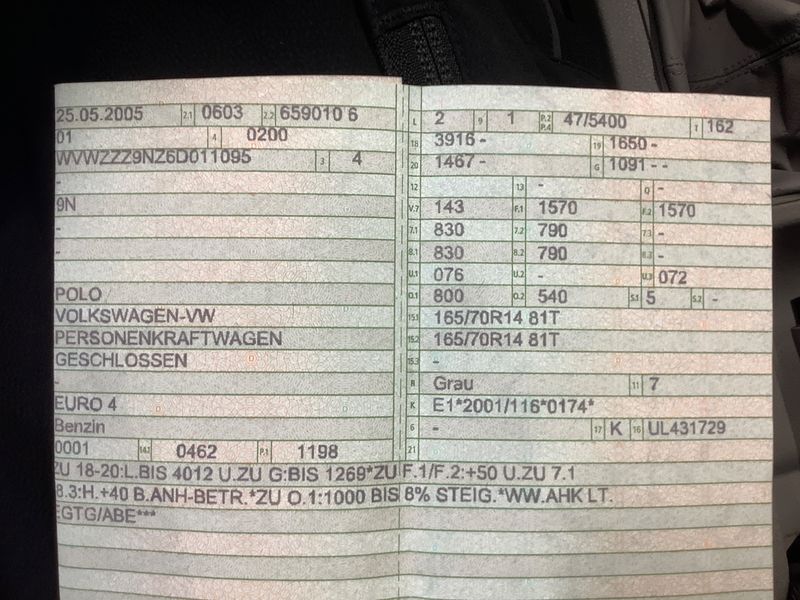 25.05.2005 2.1 0603 2.2 659010 6
01 4 0200
WVWZZZ9NZ6D011095 3 4
-
9N
-
-
POLO
VOLKSWAGEN-VW
PERSONENKRAFTWAGEN
GESCHLOSSEN
-
EURO 4
Benzin
0001 14.1 0462 P.1 1198
L 2 9 1 P.2 P.4 47/5400 T 162
18 3916 - 19 1650 -
20 1467 - G 1091 - -
12 13 - Q -
V.7 143 F.1 1570 F.2 1570
7.1 830 7.2 790 7.3 -
8.1 830 8.2 790 8.3 -
U.1 076 U.2 - U.3 072
O.1 800 O.2 540 S.1 5 S.2 -
15.1 165/70R14 81T
15.2 165/70R14 81T
15.3 -
R Grau 11 7
K E1*2001/116*0174*
6 - 17 K 16 UL431729
21
ZU 18-20:L.BIS 4012 U.ZU G:BIS 1269*ZU F.1/F.2:+50 U.ZU 7.1
8.3:H.+40 B.ANH-BETR.*ZU O.1:1000 BIS 8% STEIG.*WW.AHK LT.
EGTG/ABE***